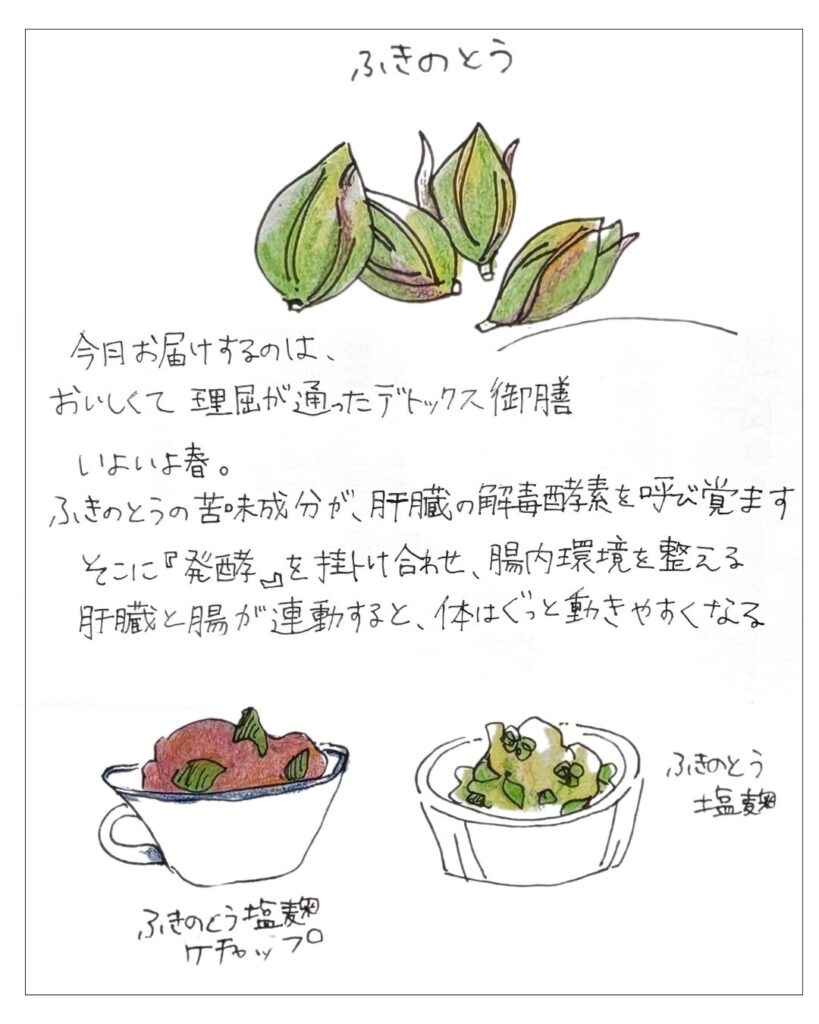 ふきのとう
今月お届けするのは、
おいしくて 理屈が通ったデトックス御膳
いよいよ春。
ふきのとうの苦味成分が、肝臓の解毒酵素を呼び覚ます
そこに『発酵』を掛け合わせ、腸内環境を整える
肝臓と腸が連動すると、体はぐっと動きやすくなる
ふきのとう
塩麹
ふきのとう塩麹
ケチャップ